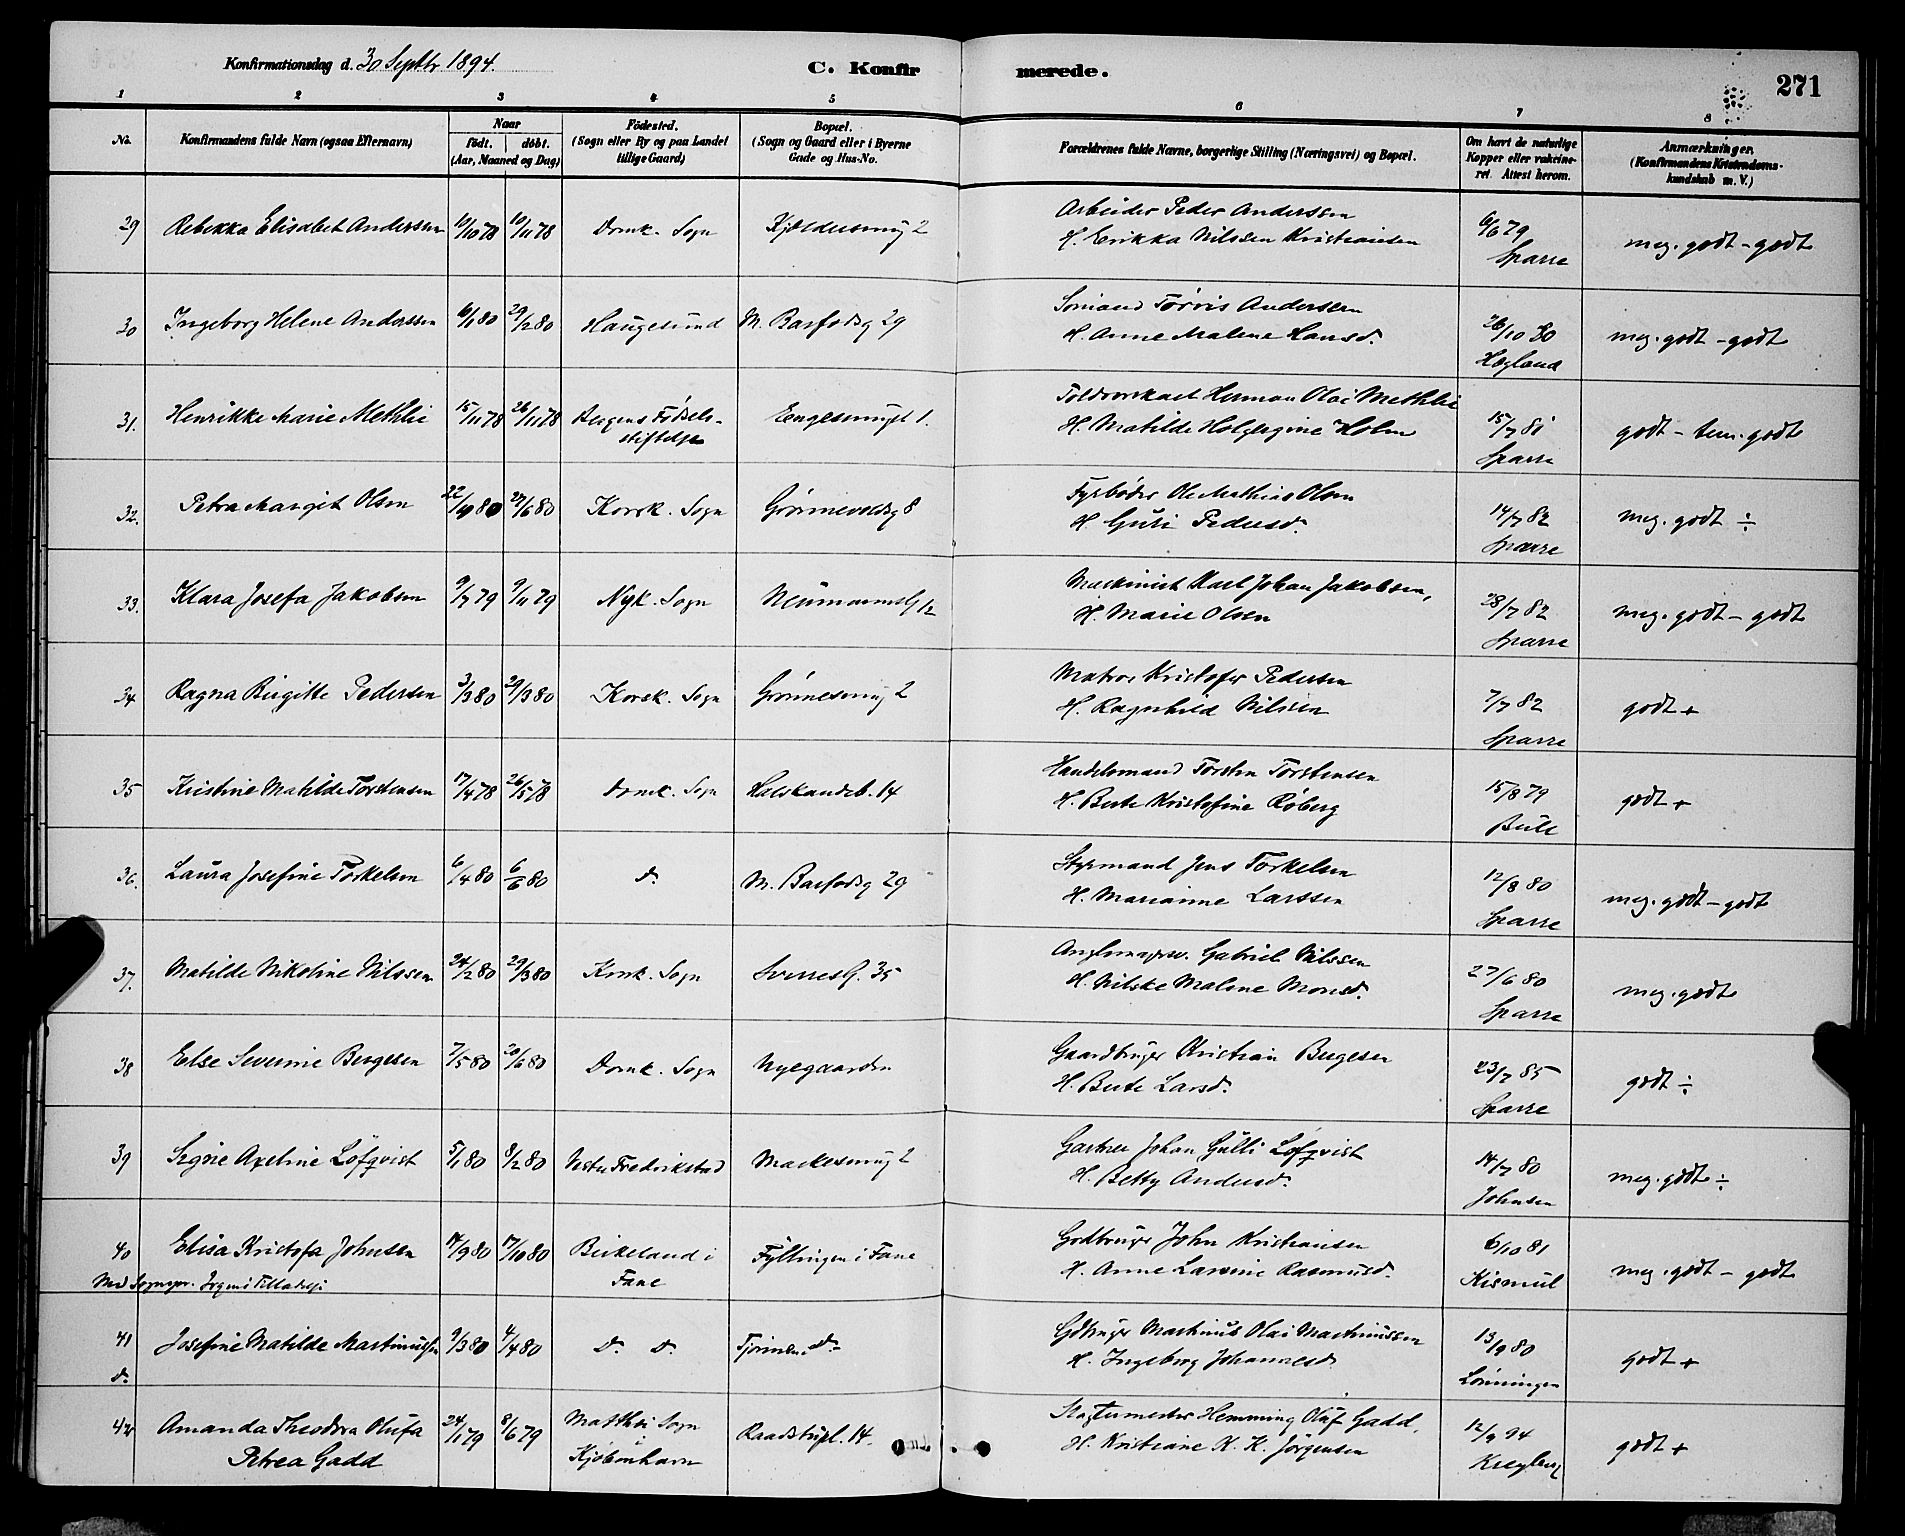 Konfirmationsdag d. 30 Septbr 1894.
C. Konfirmerede.
271
1 2 3 4 5 6 7 8
No.
Konfirmandens fulde Navn (ogsaa Efternavn)
Naar
födt. döbt.
(Aar, Maaned og Dag)
Födested.
(Sogn eller By og paa Landet
tillige Gaard)
Bopæl.
(Sogn og Gaard eller i Byerne
Gade og Hus-No.
Forældrenes fulde Navne, borgerlige Stilling (Næringsvei) og Bopæl.
Om havt de naturlige
Kopper eller vakcine-
ret. Attest herom.
Anmærkninger.
(Konfirmandens Kristendoms-
kundskab m. V.)
29 Rebekka Elisabet Anderssen 10/10 78 10/11 78 Domk. Sogn 2 Arbeider Peder Anderssen 6/6 79 meg. godt - godt
H. Erikka Nilssen Kristiansen Sparre
30 Ingeborg Helene Anderssen 6/1 80 29/2 80 Haugesund M. Barfodsg 29 Sömand Anderssen 26/10 80 meg. godt - godt
H. Anne Malene Hansd. Hegland
31. Henrikke Marie Methlie 15/11 78 26/11 78 Bergens Födsels- Engesmuget 1. Herman Olai Methlie 15/7 81 godt - tem. godt
stiftelse H. Matilde Holgergine Holm Sparre
32. Petra Margit Olsen 22/4 80 27/6 80 Korsk. Sogn Grönnevoldsg 8 Fyrböder Ole Mathias Olsen 14/7 82 meg. godt ÷
H Guri Pedersd. Sparre
33. Klara Josefa Jakobsen 9/7 79 9/11 79 Nyk. Sogn NeumannsG 12 Maskinist Karl Johan Jakobsen, 28/7 82 meg. godt - godt
H. Marie Olsen Sparre
34 Ragna Birgitte Pedersen 3/3 80 29/3 80 Korsk. Sogn Grönnesmug 2 Matros Kristofer Pedersen 7/7 82 godt +
H. Ragnhild Nilssen Sparre
35 Kristine Matilde Torstensen 17/4 78 26/5 78 Domk. Sogn 14 Handelsmand Torsten Torstensen 15/8 79 godt +
H. Berte Kristofine Röberg Bull
36. Laura Josefine Torkelsen 6/4 80 6/6 80 d. M. Barfodsg 29 Styrmand Jens Torkelsen 12/8 80 meg. godt - godt
H. Marianne Larssen Sparre
37. Matilde Nikoline Nilssen 24/2 80 29/3 80 Sogn SverresG. 35 Gabriel Nilssen 22/6 80 meg. godt
H. Nilske Malene Monsd. Sparre
38 Else Severine Bergesen 7/5 80 20/6 80 Domk. Sogn Nyegaarden Gaardbruger Kristian Bergesen 23/7 85 godt ÷
H. Berte Larsd. Sparre
39 Signe Axeline Löfqvist 5/1 80 8/2 80 Vestre Fredrikstad Markesmug 2 Gartner Johan Gulli Löfqvist 14/7 80 meg. godt ÷
H. Betty Andersd. Johnsen
40 Elisa Kristofa Johnsen 14/9 80 17/10 80 Birkeland i Fyllingen i Fane Gdbruger John Kristiansen 6/10 81 meg. godt - godt
Med Sognepr. Tilladelse Fane H. Anne Larsine Rasmusd. Kismul
41 Josefine Matilde Martinussen 9/3 80 4/4 80 d. d. d. Gdbruger Martinus Olai Martinussen 13/9 80 godt +
d. H. Ingeborg Johannesd. Lönningen
42 Amanda Theodora Olufa 24/1 79 8/6 79 Matthei Sogn Raadstupl. 14. Slagtermester Hemming Oluf Gadd, 12/9 94 godt +
Petrea Gadd Kjöbenhavn H. Kristiane K. K. Jörgensen